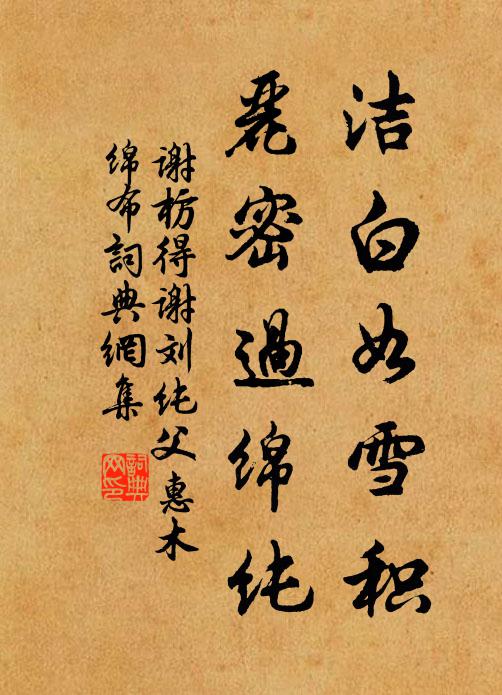 洁白如雪积
麗密過綿纯
谢枋得谢刘纯父惠木
绵布詞典網集
詞典網印